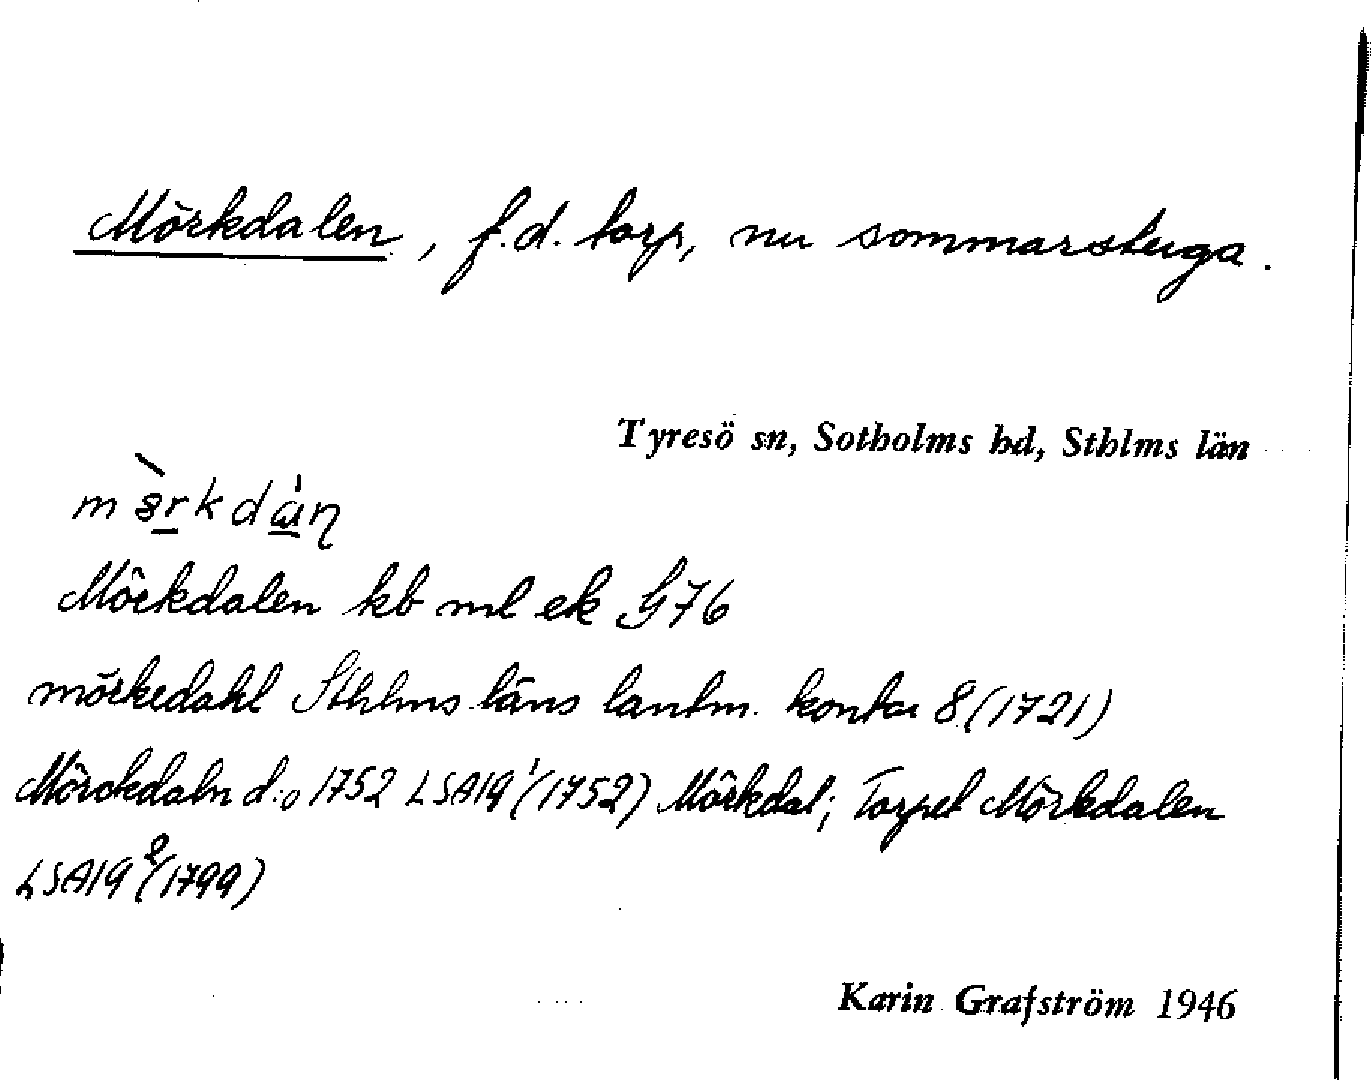 Mörkdalen, f.d. torp, nu sommarstuga.
Tyresö sn, Sotholms hd, Sthlms län
Mörkdalen kb ml ek G76
mörkedahl Sthlms läns lantm. kontor 8 (1721)
Mörckdaln d:o 1752 LSA19¹(1752) Mörkdal; Torpet Mörkdalen
LSA19²(1799)
Karin Grafström 1946